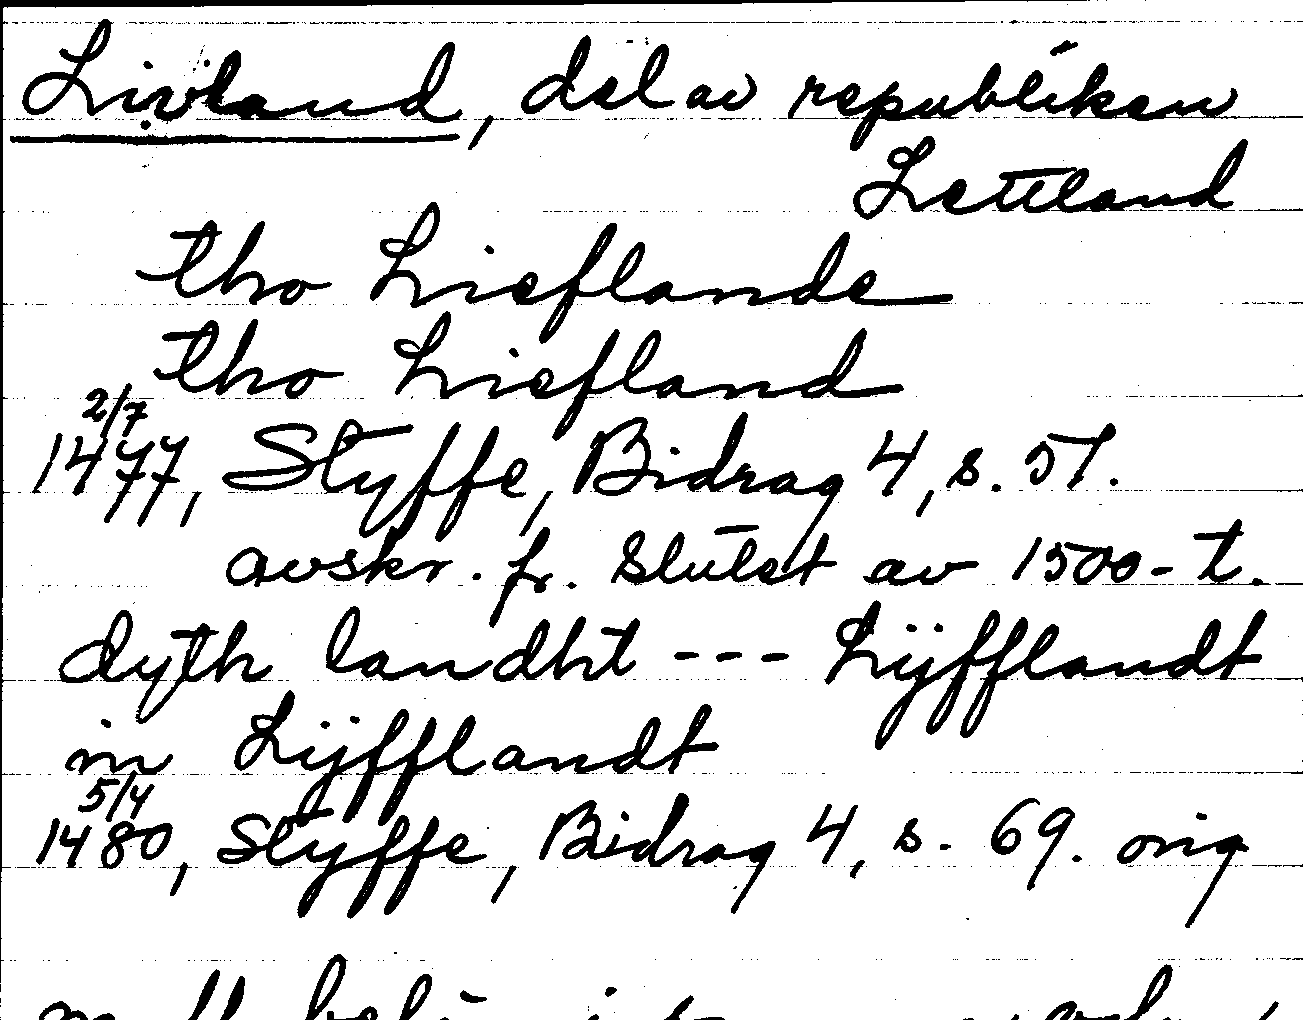 Livland, del av republiken
Lettland
tho Lieflande
tho Liefland
2/7
1477, Styffe, Bidrag 4, s. 57.
avskr. fr. slutet av 1500-t.
dyth landht --- Lijfflandt
in Lijfflandt
5/4
1480, Styffe, Bidrag 4, s. 69. orig